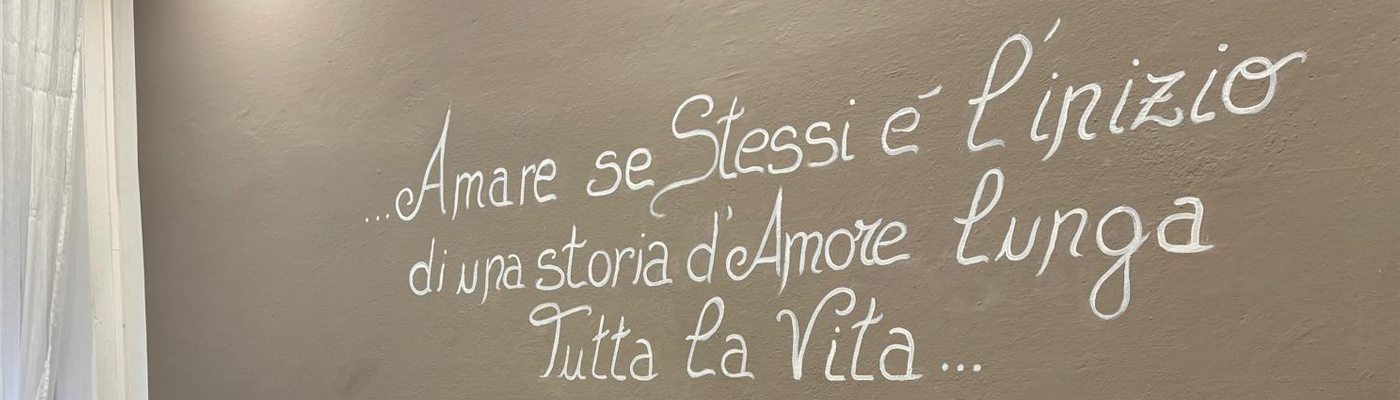 ...Amare se Stessi é l'inizio
di una storia d'Amore lunga
Tutta la Vita...